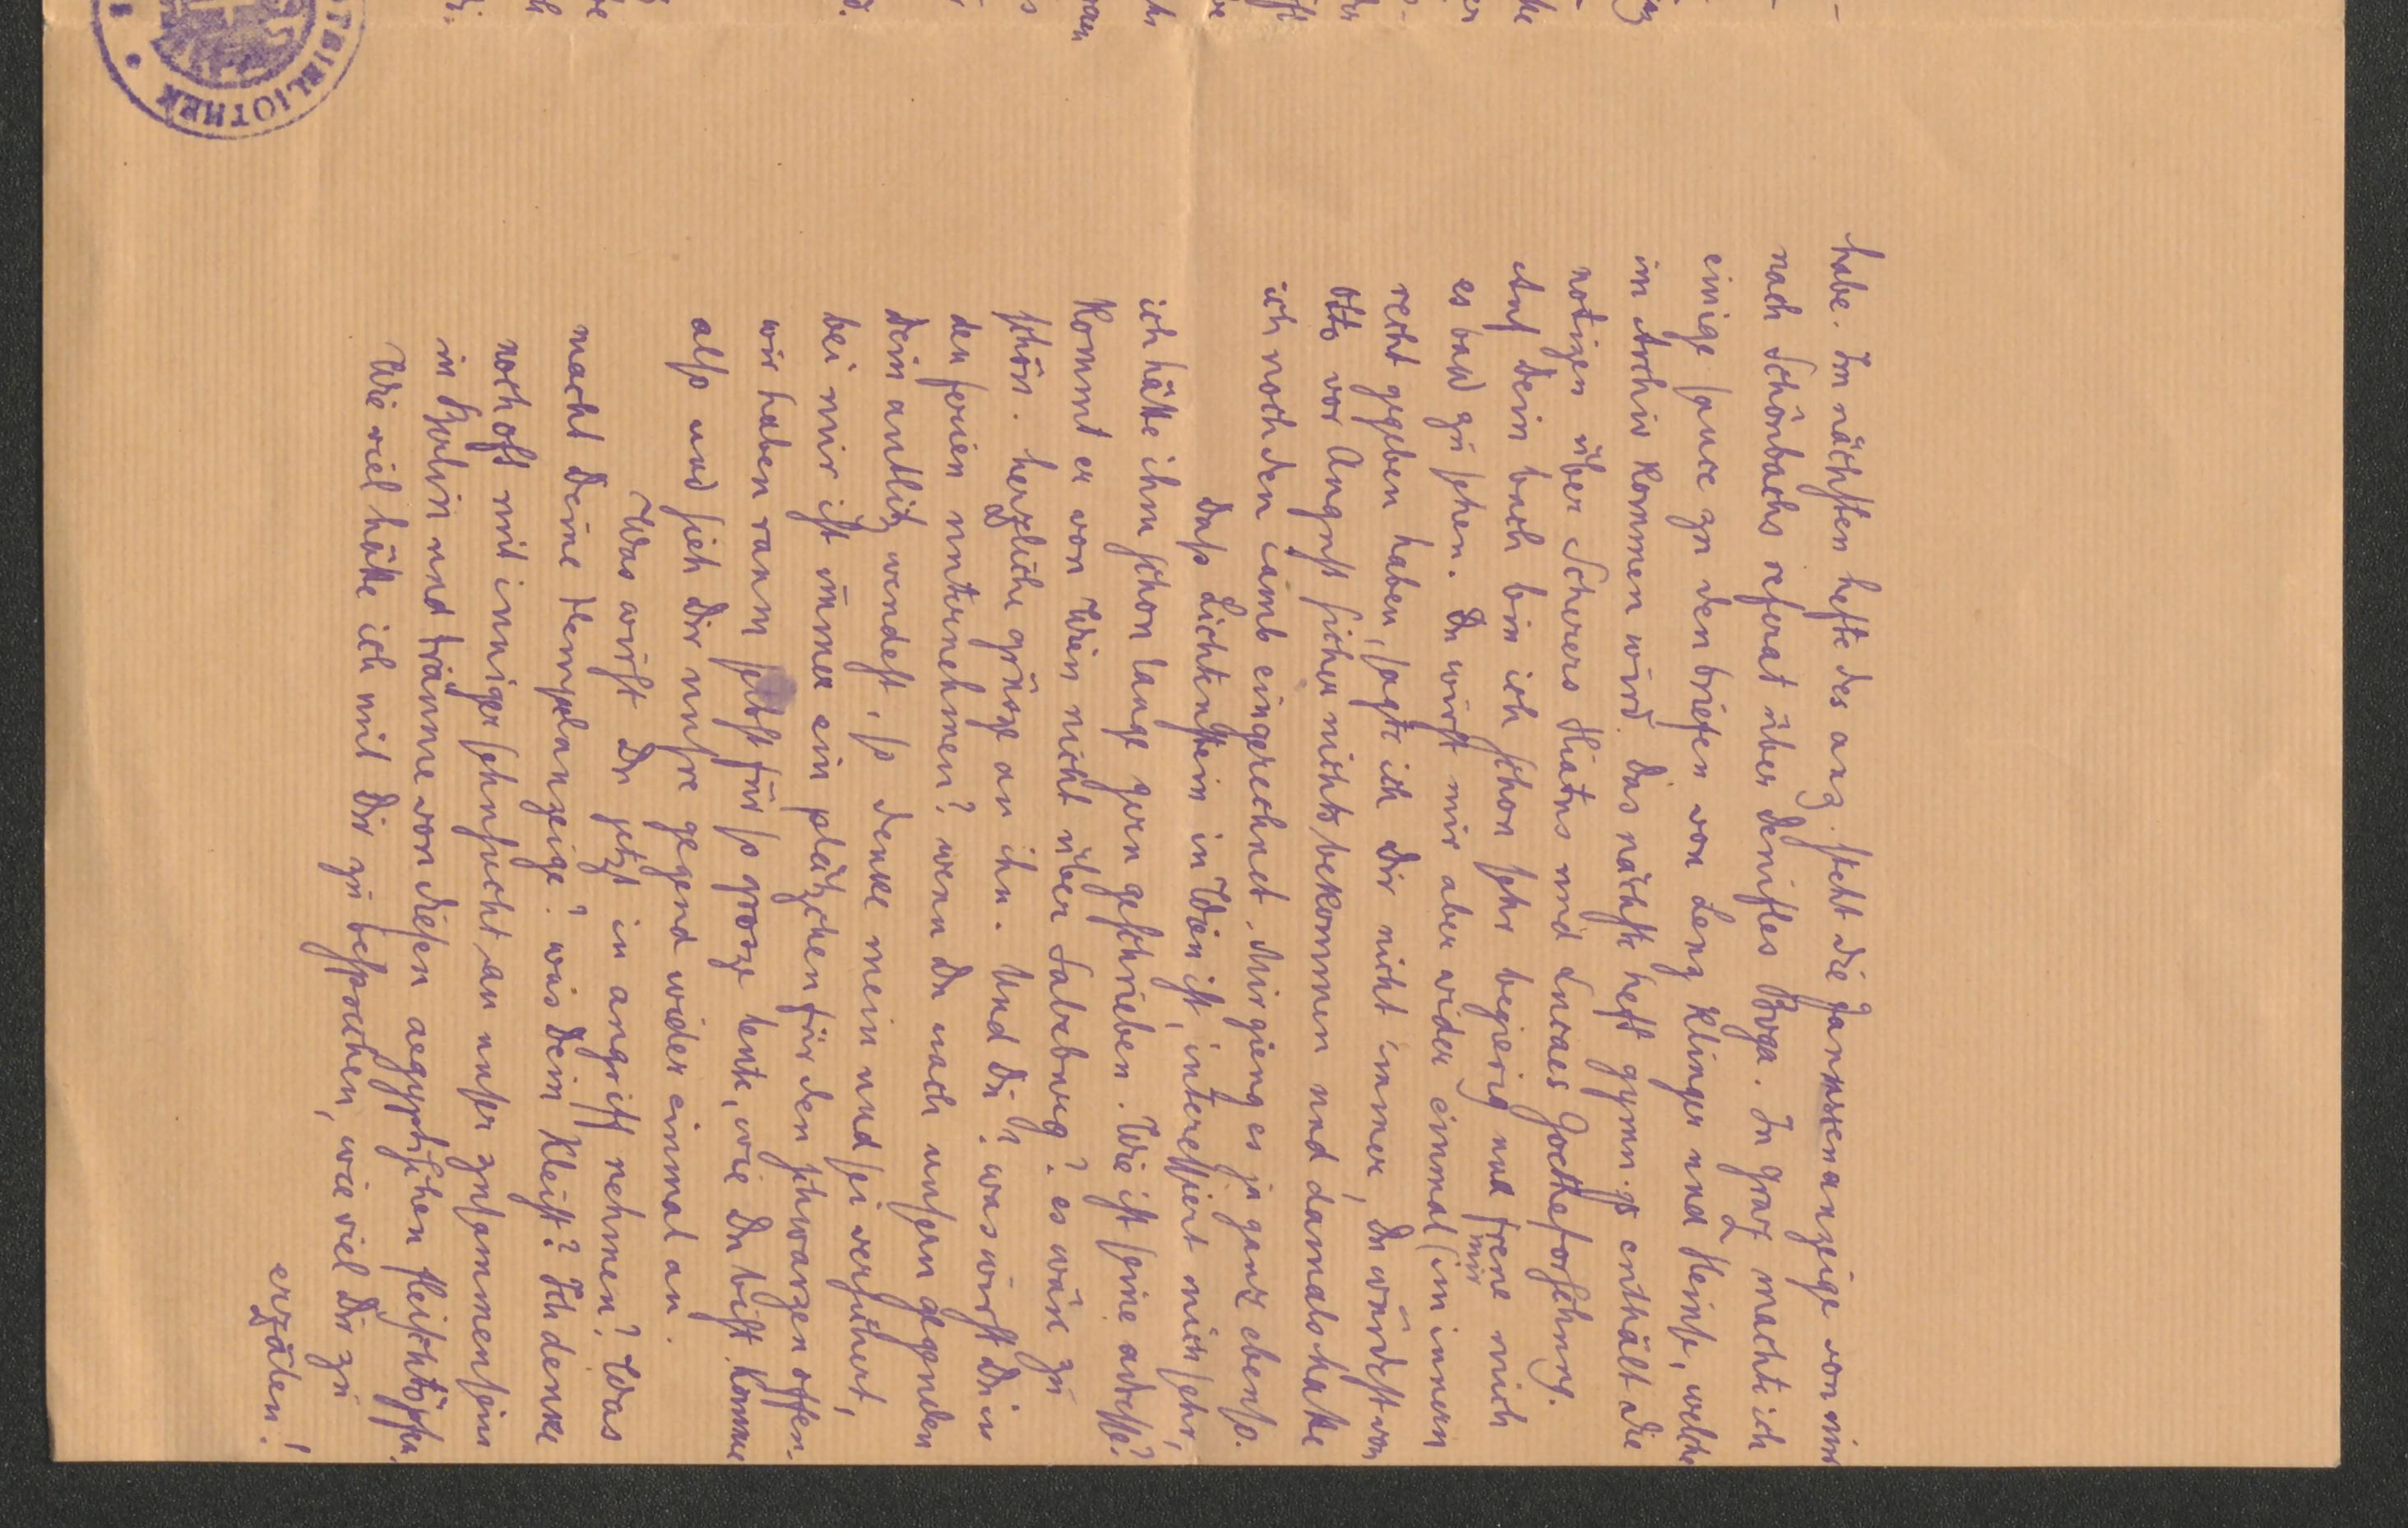 habe. Im nächsten hefte des anz. steht die Janssenanzeige von mir
nach Schönbachs referat über Denifles Buga. In graz machte ich
einige saure zu den briefen von Lenz Klinger und Heinse, welche
im Archiv kommen wird. Das nächste heft gymn. zs enthält die
notizen über Scherers Hiatus und Suraes Goetheforschung.
Auf Dein buch bin ich schon sehr begierig und freue mich
es bald zu sehen. Du wirst mir aber wider einmal (im innern
mir
recht gegeben haben, sagte ich Dir nicht immer, Du würdest von
Otto vor Angust sicher nichts bekommen und damals hatte
ich noch den Lamb eingerechnet. Mir gieng es ja ganz ebenso.
Dass Lichtenstein in Wien ist, interessiert mich sehr,
ich hätte ihm schon lange gern geschrieben. Wie ist seine adresse?
Kommt er von Wien nicht über Salzburg? es wäre zu
schön. herzliche grüsze an ihn. Und Du? was wirst Du in
den ferien unternehmen? wenn Du nach unsern gegenden
Dein antlitz wendest, so denke mein und sei versichert,
bei mir ist immer ein plätzchen für den schwarzen offen.
wir haben raum selbst für so grosze leute, wie Du bist. Komme
also und sieh Dir unsre gegend wider einmal an.
Was wirst Du jetzt in angriff nehmen? Was
macht Deine Hempelanzeige? was Dein Kleist? Ich denke
noch oft mit inniger sehnsucht an unser zusammensein
in Berlin und träume von diesen aegyptischen fleischtöpfen.
Wie viel hätte ich mit Dir zu besprechen, wie viel Dir zu
erzälen!
BIBLIOTHEK